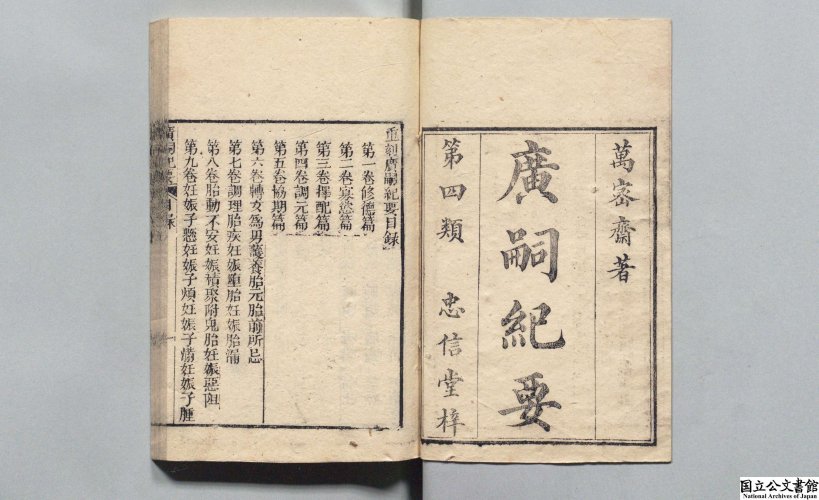 萬密齋著
廣嗣紀要
第四類　忠信堂梓
重刻廣嗣紀要目錄
第一卷修德篇
第二卷寡慾篇
第三卷擇配篇
第四卷調元篇
第五卷協期篇
第六卷轉女爲男護養胎元胎前所忌
第七卷調理胎疾妊娠墮胎妊娠胎漏
第八卷胎動不安妊娠積聚附鬼胎妊娠惡阻
第九卷妊娠子懸妊娠子煩妊娠子癇妊娠子腫
廣嗣紀要 目錄
国立公文書館
National Archives of Japan